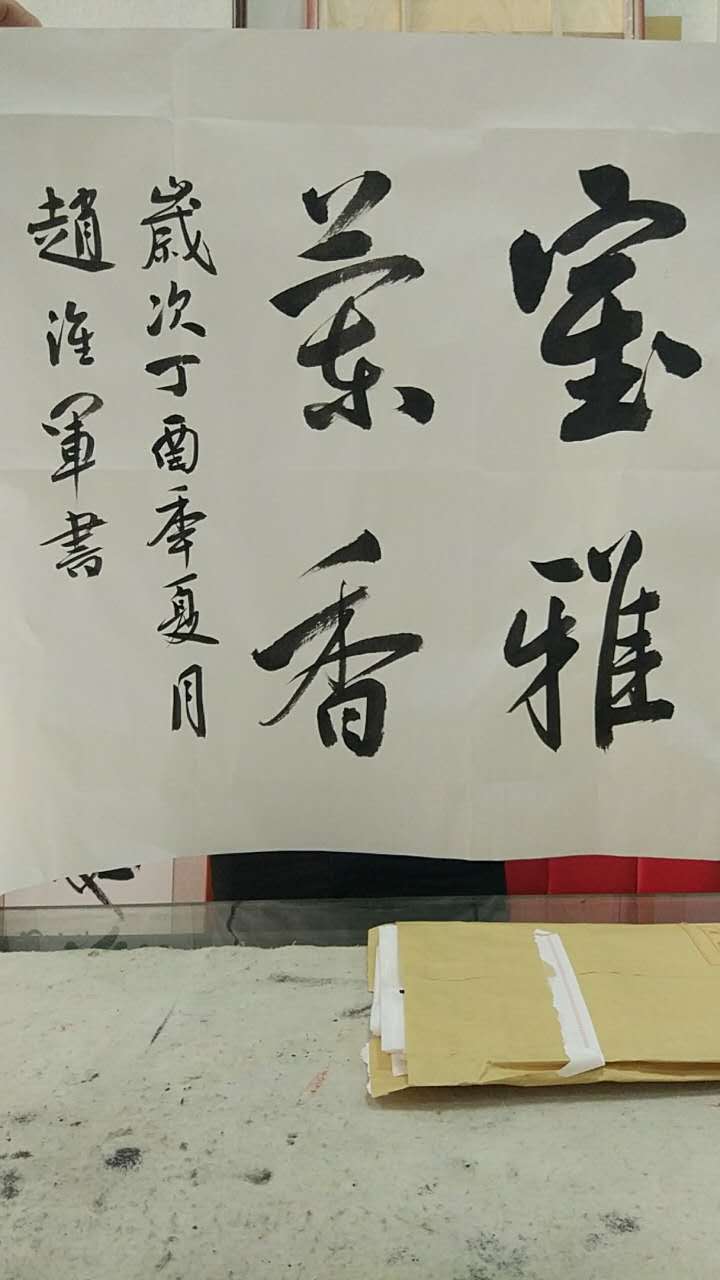 室雅
蘭香
歲次丁酉季夏月
趙淮軍書